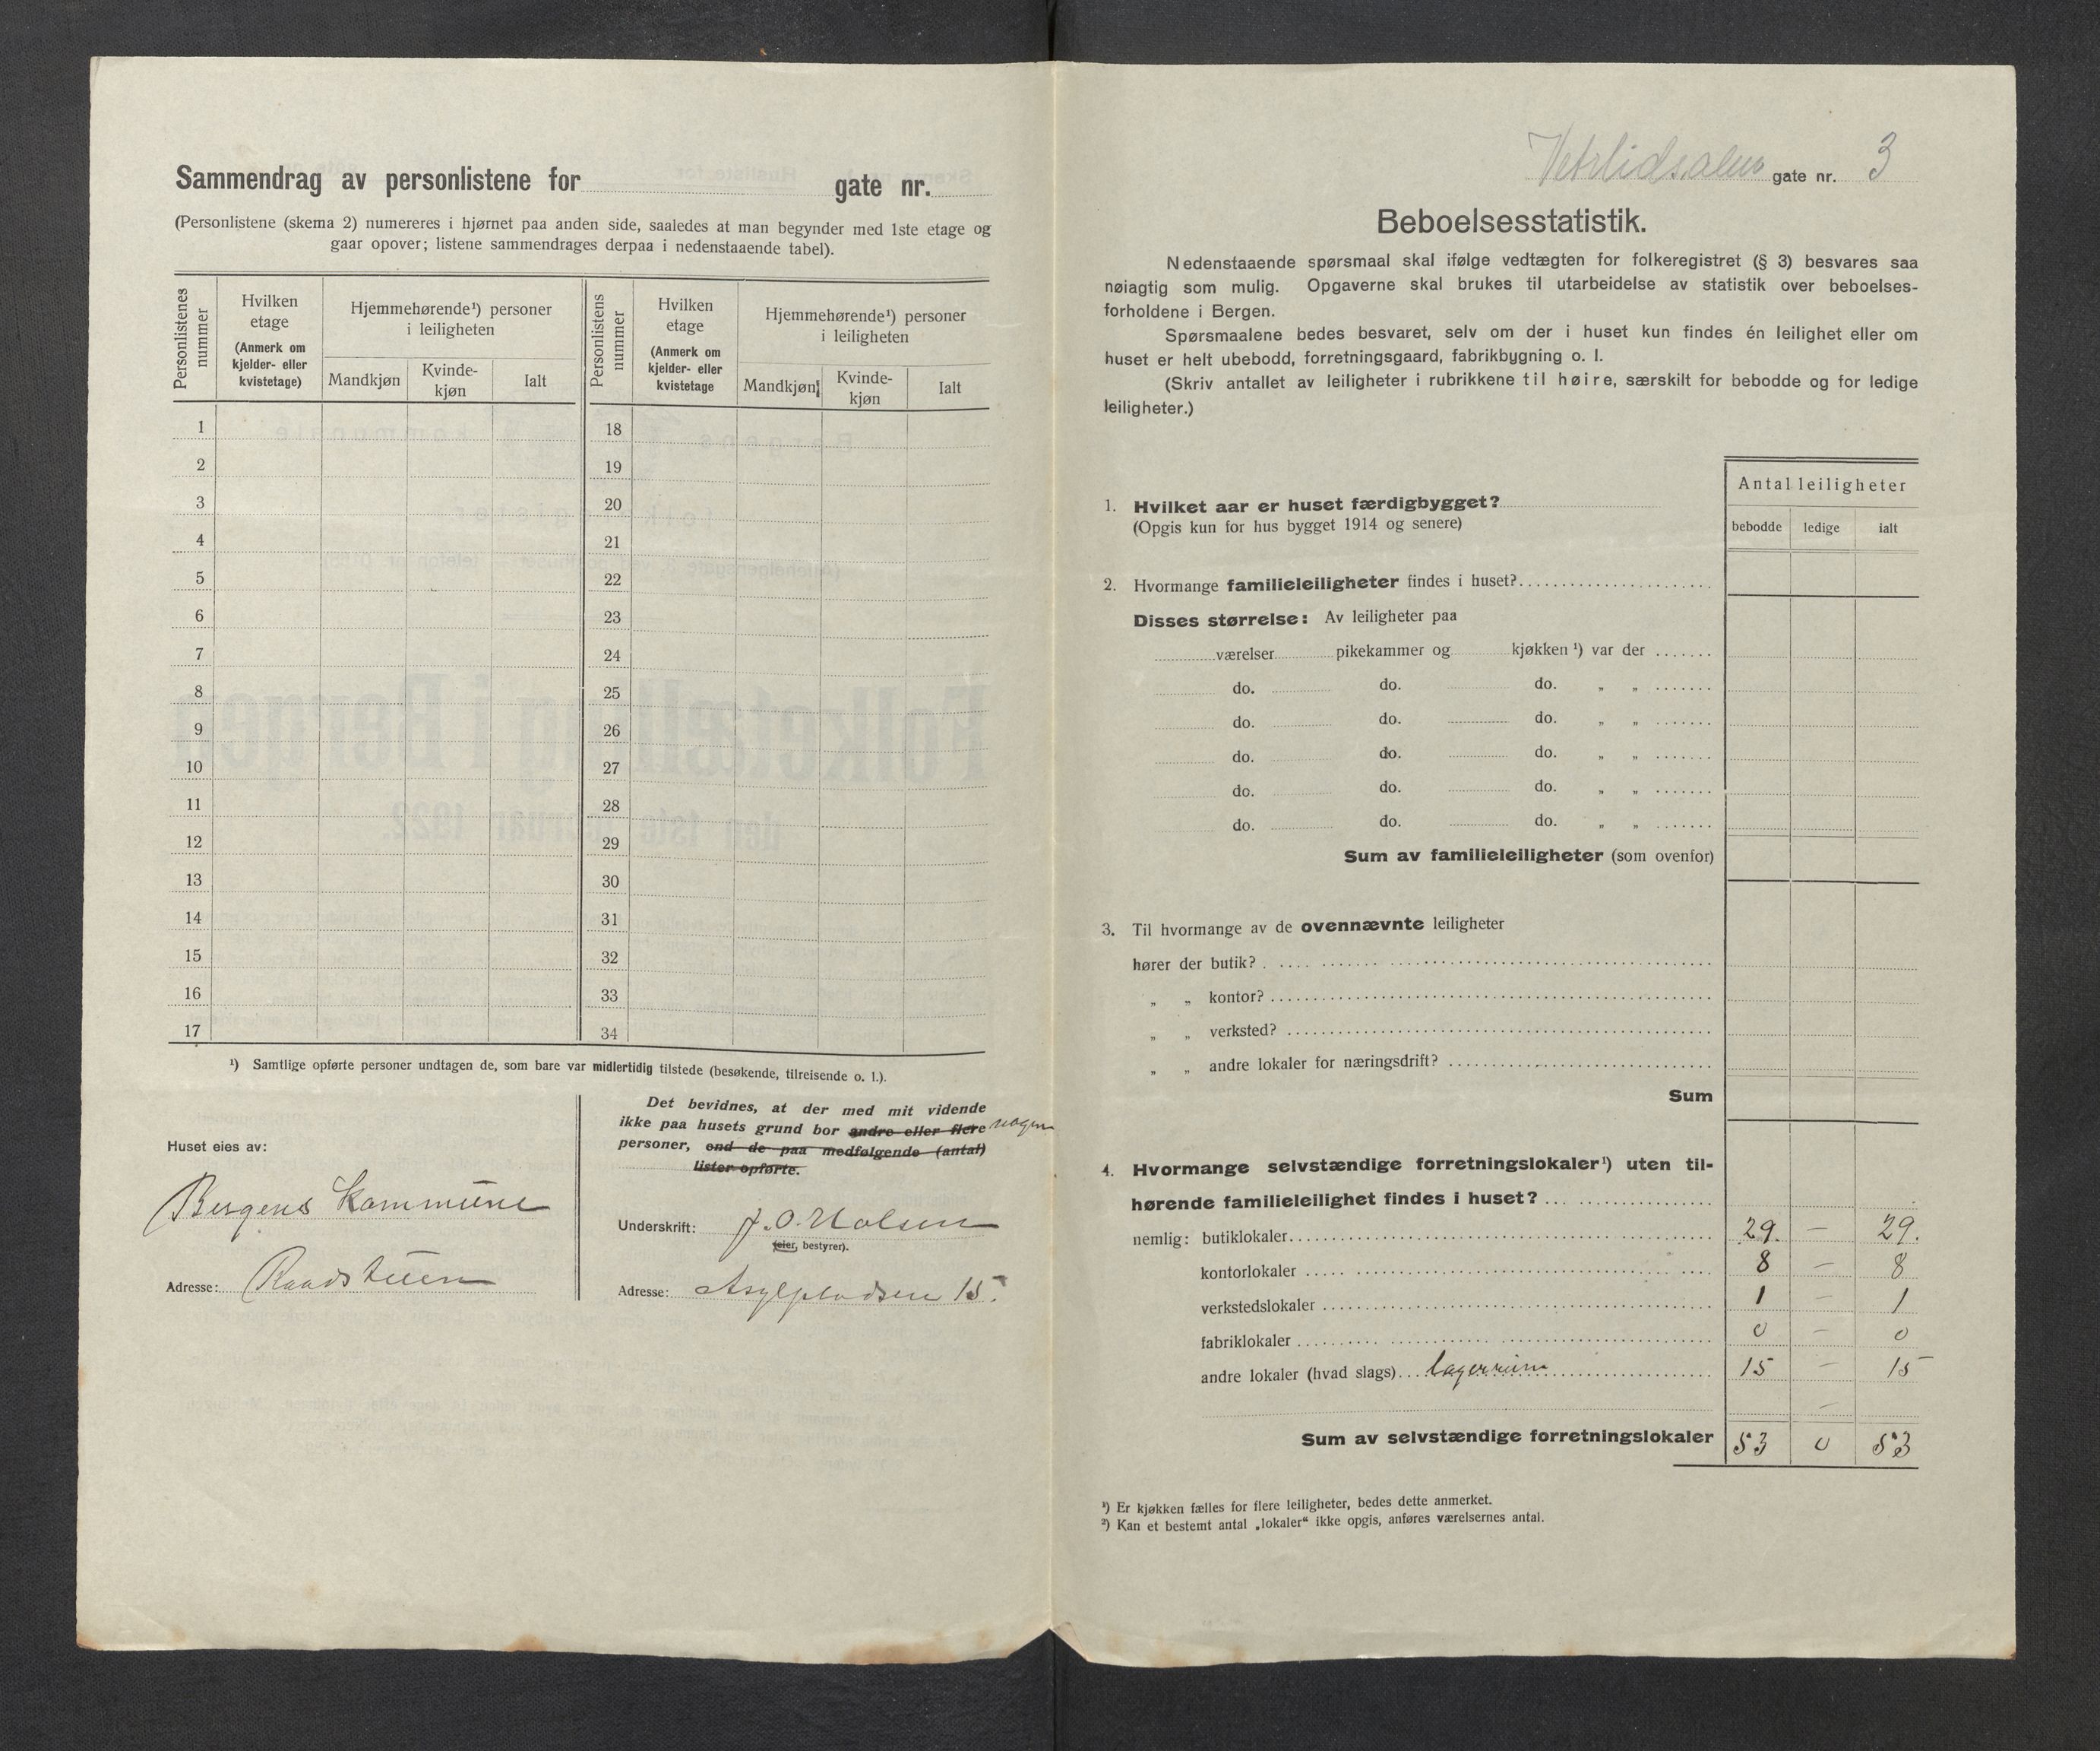 Sammendrag av personlistene for gate nr.
(Personlistene (skema 2) numereres i hjørnet paa anden side, saaledes at man begynder med 1ste etage og
gaar opover; listene sammendrages derpaa i nedenstaaende tabel).
Personlistenes nummer
Hvilken etage (Anmerk om kjelder- eller kvistetage)
Hjemmehørende¹) personer i leiligheten
Mandkjøn
Kvinde-kjøn
Ialt
Personlistens nummer
Hvilken etage (Anmerk om kjelder- eller kvistetage
Hjemmehørende¹) personer i leiligheten
Mandkjøn
Kvinde-kjøn
Ialt
1 18
2 19
3 20
4 21
5 22
6 23
7 24
8 25
9 26
10 27
11 28
12 29
13 30
14 31
15 32
16 33
17 34
¹) Samtlige opførte personer undtagen de, som bare var midlertidig tilstede (besøkende, tilreisende o. l.).
Huset eies av:
Bergens Kommune
Adresse: Raadstuen
Det bevidnes, at der med mit vidende
ikke paa husets grund bor andre eller flere nogen
personer, end de paa medfølgende (antal)
lister opførte.
Underskrift: J. O. Molsen
(eier, bestyrer).
Adresse: Asylpladsen 15.
Vetrlidsalm gate nr. 3
Beboelsesstatistik.
Nedenstaaende spørsmaal skal ifølge vedtægten for folkeregistret (§ 3) besvares saa
nøiagtig som mulig. Opgaverne skal brukes til utarbeidelse av statistik over beboelses-
forholdene i Bergen.
Spørsmaalene bedes besvaret, selv om der i huset kun findes én leilighet eller om
huset er helt ubebodd, forretningsgaard, fabrikbygning o. l.
(Skriv antallet av leiligheter i rubrikkene til høire, særskilt for bebodde og for ledige
leiligheter.)
Antal leiligheter
bebodde ledige ialt
1. Hvilket aar er huset færdigbygget?
(Opgis kun for hus bygget 1914 og senere)
2. Hvormange familieleiligheter findes i huset?
Disses størrelse: Av leiligheter paa
værelser pikekammer og kjøkken ¹) var der
do. do. do. „ „
do. do. do. „ „
do. do. do. „ „
do. do. do. „ „
do. do. do. „ „
Sum av familieleiligheter (som ovenfor)
3. Til hvormange av de ovennævnte leiligheter
hører der butik?
„ „ kontor?
„ „ verksted?
„ „ andre lokaler for næringsdrift?
Sum
4. Hvormange selvstændige forretningslokaler¹) uten til-
hørende familieleilighet findes i huset?
nemlig: butiklokaler 29. — 29.
kontorlokaler 8 — 8
verkstedslokaler 1 — 1
fabriklokaler 0 — 0
andre lokaler (hvad slags) lagerrum 15 — 15
—
Sum av selvstændige forretningslokaler 53 0 53
¹) Er kjøkken fælles for flere leiligheter, bedes dette anmerket.
²) Kan et bestemt antal „lokaler“ ikke opgis, anføres værelsernes antal.